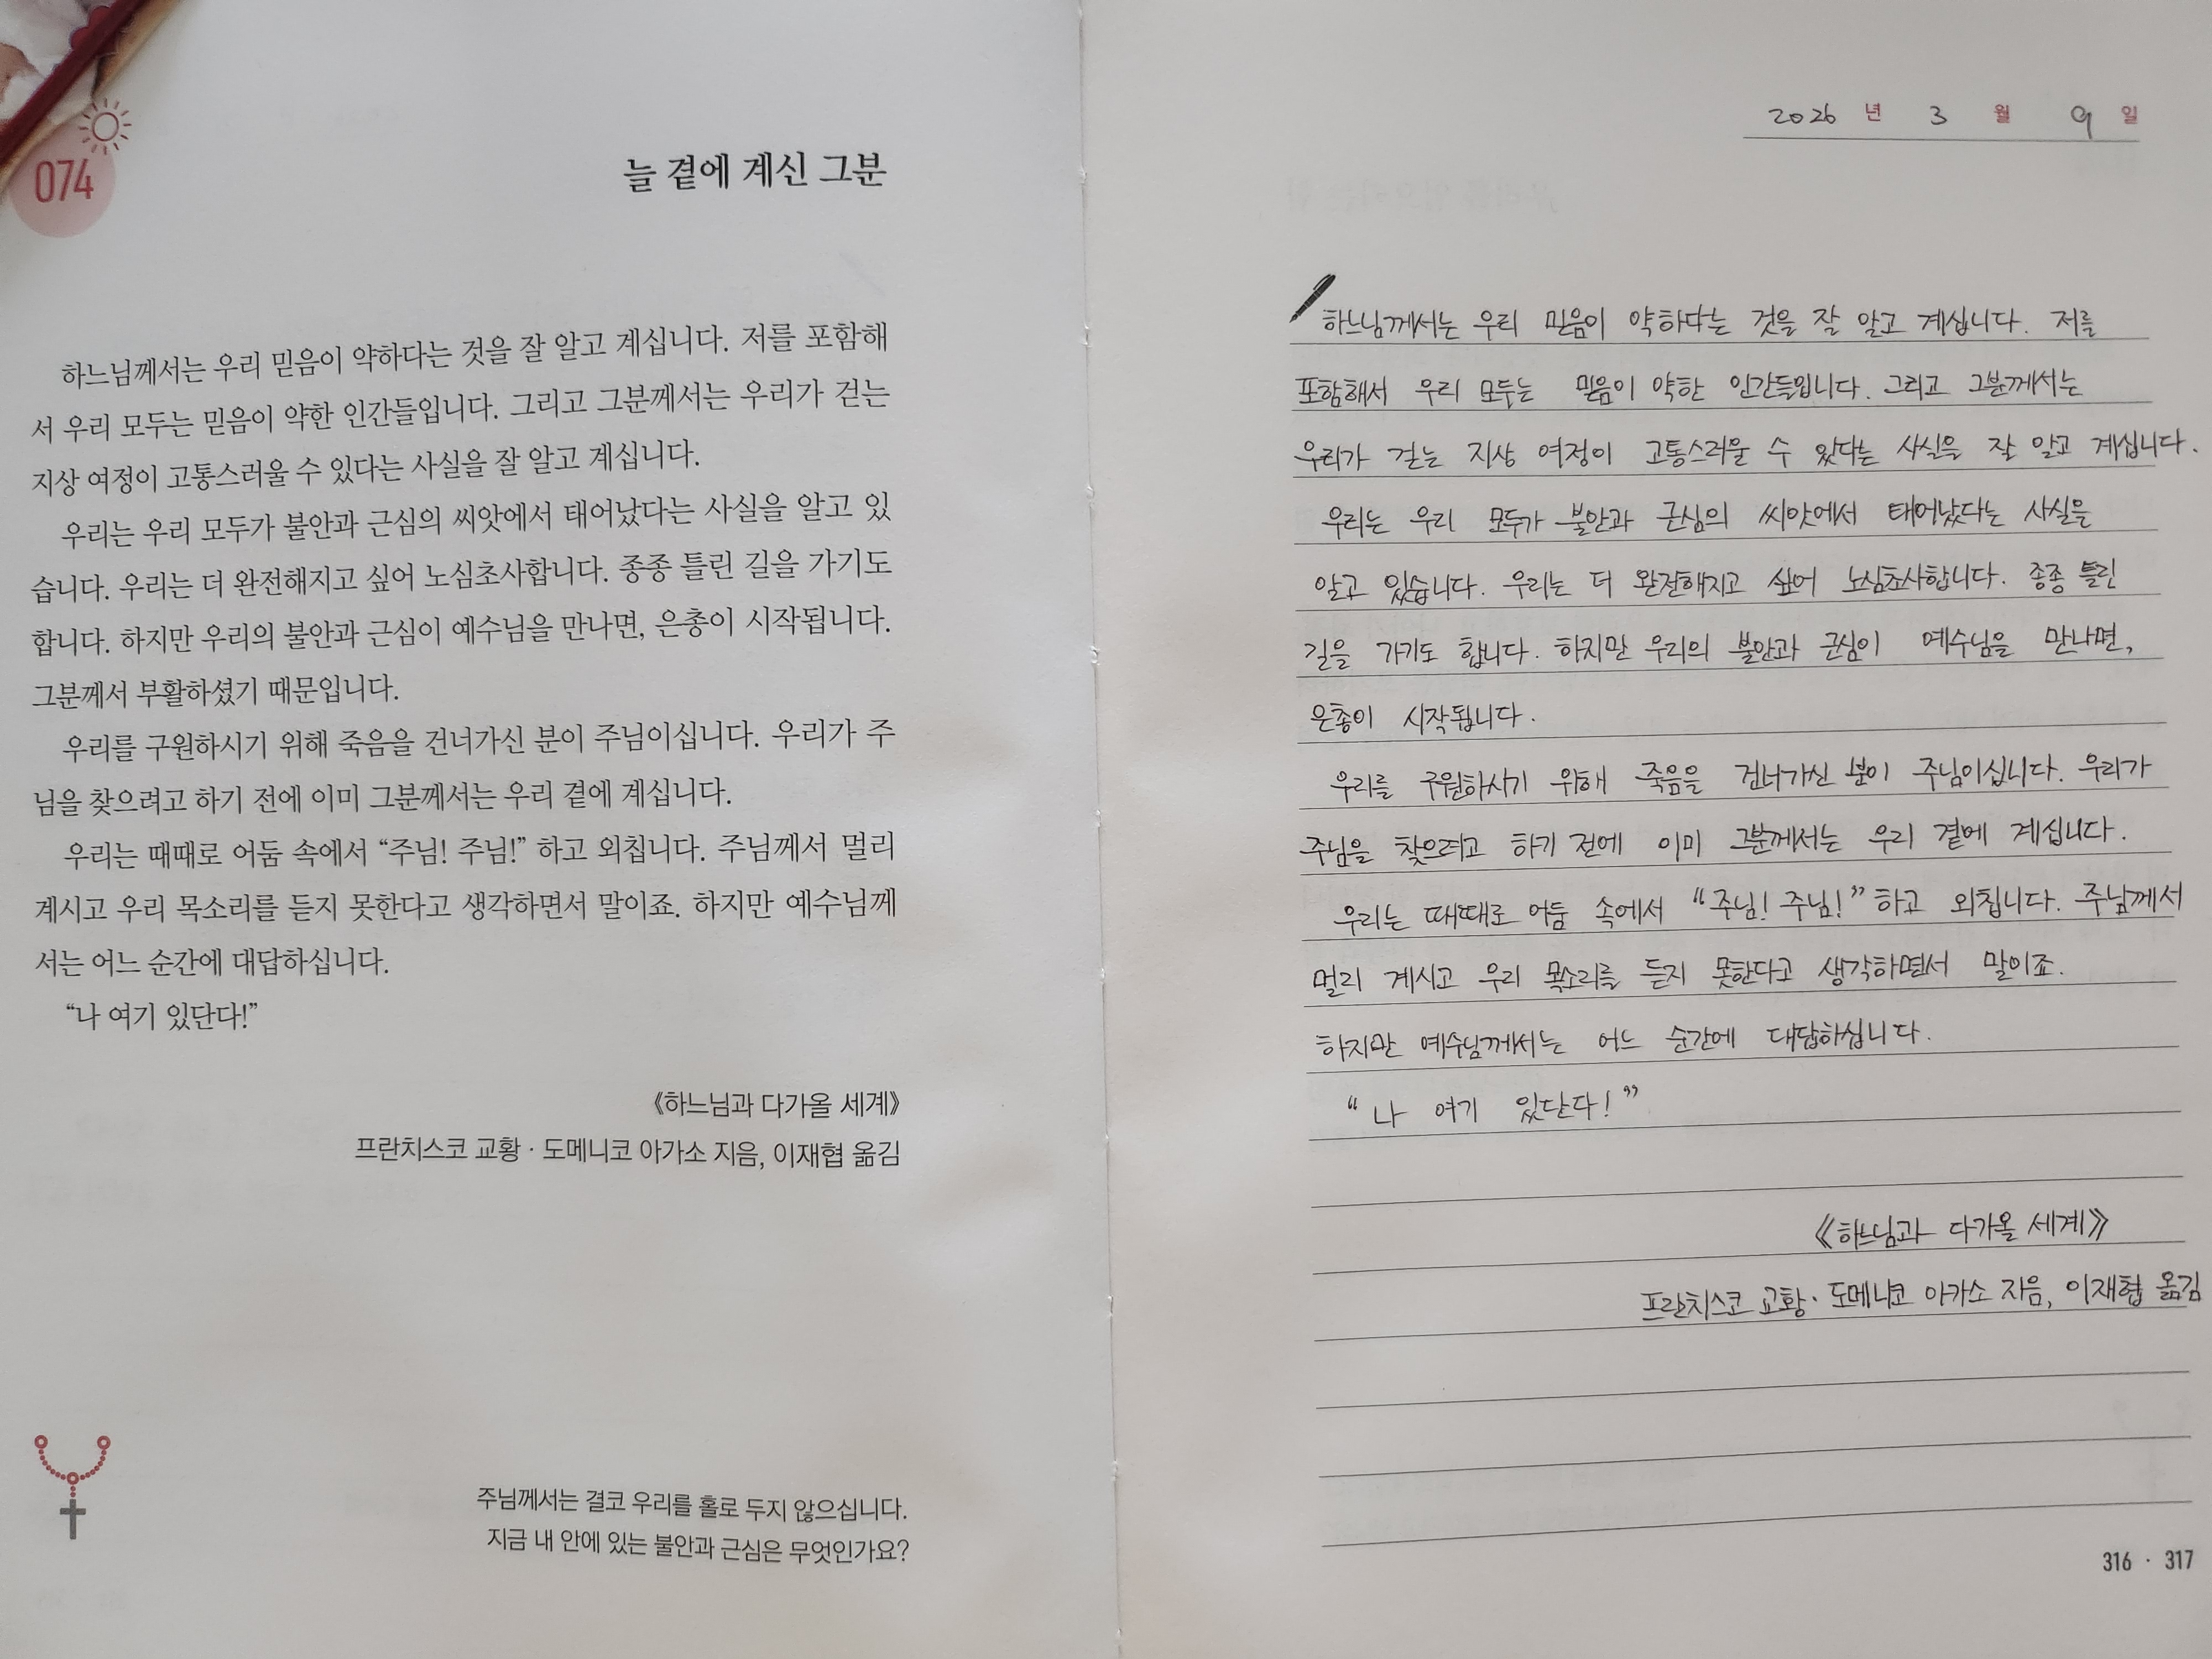 074
늘 곁에 계신 그분
하느님께서는 우리 믿음이 약하다는 것을 잘 알고 계십니다. 저를 포함해
서 우리 모두는 믿음이 약한 인간들입니다. 그리고 그분께서는 우리가 걷는
지상 여정이 고통스러울 수 있다는 사실을 잘 알고 계십니다.
우리는 우리 모두가 불안과 근심의 씨앗에서 태어났다는 사실을 알고 있
습니다. 우리는 더 완전해지고 싶어 노심초사합니다. 종종 틀린 길을 가기도
합니다. 하지만 우리의 불안과 근심이 예수님을 만나면, 은총이 시작됩니다.
그분께서 부활하셨기 때문입니다.
우리를 구원하시기 위해 죽음을 건너가신 분이 주님이십니다. 우리가 주
님을 찾으려고 하기 전에 이미 그분께서는 우리 곁에 계십니다.
우리는 때때로 어둠 속에서 “주님! 주님!” 하고 외칩니다. 주님께서 멀리
계시고 우리 목소리를 듣지 못한다고 생각하면서 말이죠. 하지만 예수님께
서는 어느 순간에 대답하십니다.
“나 여기 있단다!”
《하느님과 다가올 세계》
프란치스코 교황 · 도메니코 아가소 지음, 이재협 옮김
주님께서는 결코 우리를 홀로 두지 않으십니다.
지금 내 안에 있는 불안과 근심은 무엇인가요?
2026 년 3 월 9 일
하느님께서는 우리 믿음이 약하다는 것을 잘 알고 계십니다. 저를
포함해서 우리 모두는 믿음이 약한 인간들입니다. 그리고 그분께서는
우리가 걷는 지상 여정이 고통스러울 수 있다는 사실을 잘 알고 계십니다.
우리는 우리 모두가 불안과 근심의 씨앗에서 태어났다는 사실을
알고 있습니다. 우리는 더 완전해지고 싶어 노심초사합니다. 종종 틀린
길을 가기도 합니다. 하지만 우리의 불안과 근심이 예수님을 만나면,
은총이 시작됩니다.
우리를 구원하시기 위해 죽음을 건너가신 분이 주님이십니다. 우리가
주님을 찾으려고 하기 전에 이미 그분께서는 우리 곁에 계십니다.
우리는 때때로 어둠 속에서 “주님! 주님!” 하고 외칩니다. 주님께서
멀리 계시고 우리 목소리를 듣지 못한다고 생각하면서 말이죠.
하지만 예수님께서는 어느 순간에 대답하십니다.
“나 여기 있단다!”
《하느님과 다가올 세계》
프란치스코 교황 · 도메니코 아가소 지음, 이재협 옮김
316 · 317